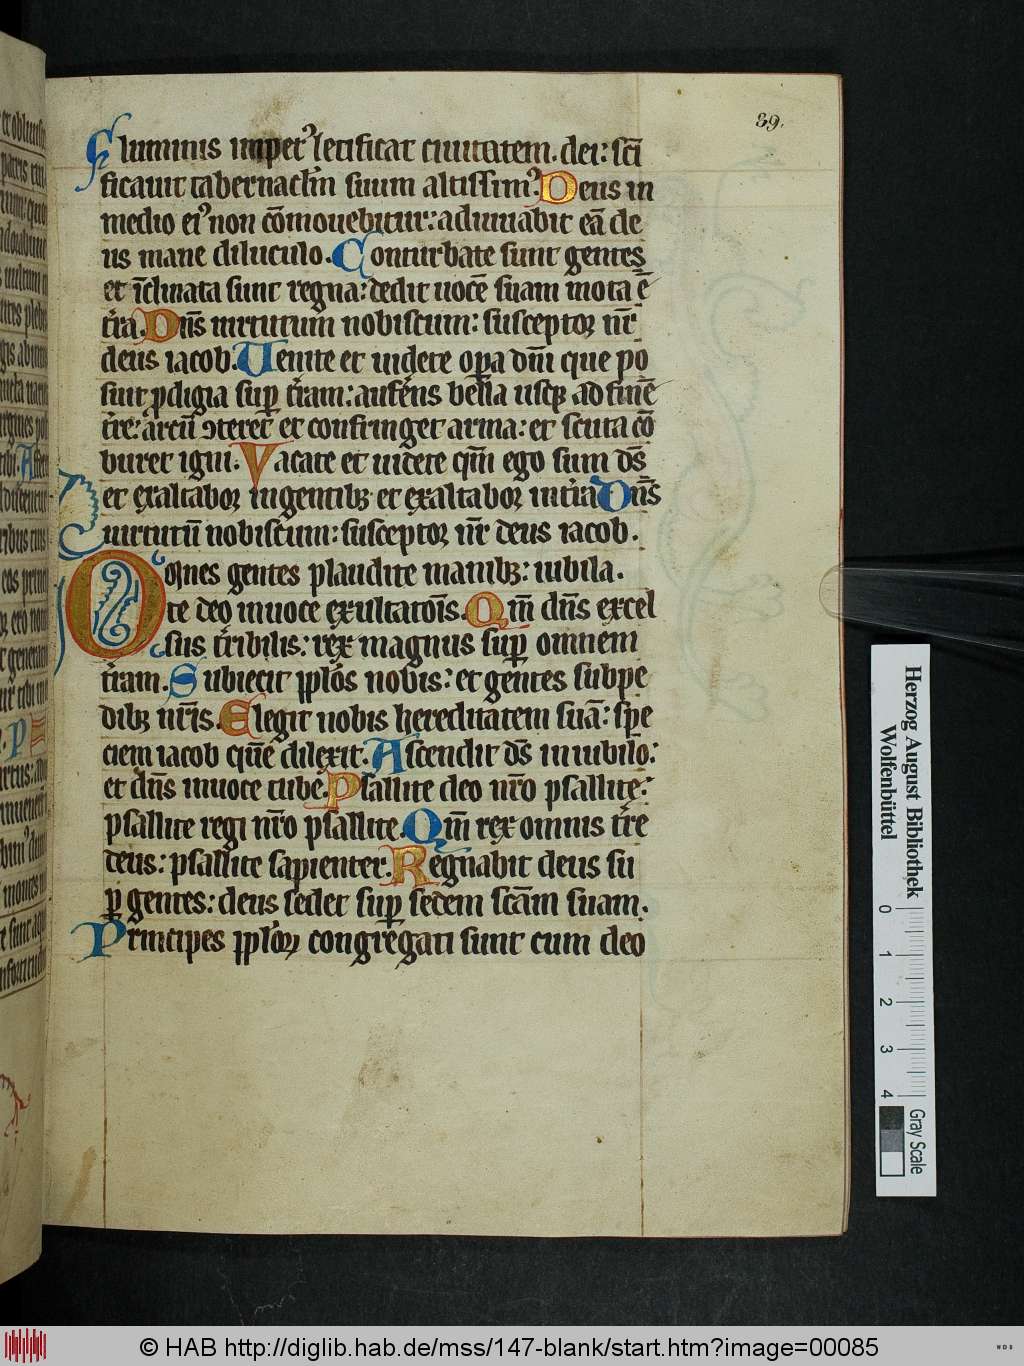 39.
Fluminis impetꝰ letificat ciuitatem. dei: sc̄i
ficauit tabernaclm̄ suum altissimꝰ. Deus in
medio eiꝰ non cōmouebitur: adiuuabit eā de
us mane diluculo. Conturbate sunt gentes
et īclinata sunt regna: dedit uocē suam mota ē
t̄ra. Dn̄s uirtutum nobiscum: susceptoꝝ nr̄
deus iacob. Uenite et uidete oꝑa dn̄i que po
suit ꝓdigia suꝑ t̄ram: auferēs bella usqꝫ ad finē
t̄re: arcū ꝯteret et confringet arma: et scuta cō
buret igni. Vacate et uidete qm̄ ego sum ds̄
et exaltaboꝝ in gentibꝫ et exaltaboꝝ in t̄ra Dn̄s
uirtutū nobiscum: susceptoꝝ nr̄ deus iacob.
Om̄nes gentes plaudite manibꝫ: iubila.
te deo in uoce exultatōis. Qm̄ dn̄s excel
sus t̄ribilis: rex magnus suꝑ omnem
t̄ram. Subiecit pplōs nobis: et gentes sub pe
dibꝫ nr̄is. Elegit nobis hereditatem suā: spe
ciem iacob quē dilexit. Ascendit ds̄ in iubilo:
et dn̄s in uoce tube. Psallite deo nr̄o psallite:
psallite regi nr̄o psallite. Qm̄ rex omnis t̄re
deus: psallite sapienter. Regnabit deus su
ꝑ gentes: deus sedet suꝑ sedem scām suam.
Principes pploꝝ congregati sunt cum deo
Herzog August Bibliothek
Wolfenbüttel
0 1 2 3 4
Gray Scale
© HAB http://diglib.hab.de/mss/147-blank/start.htm?image=00085